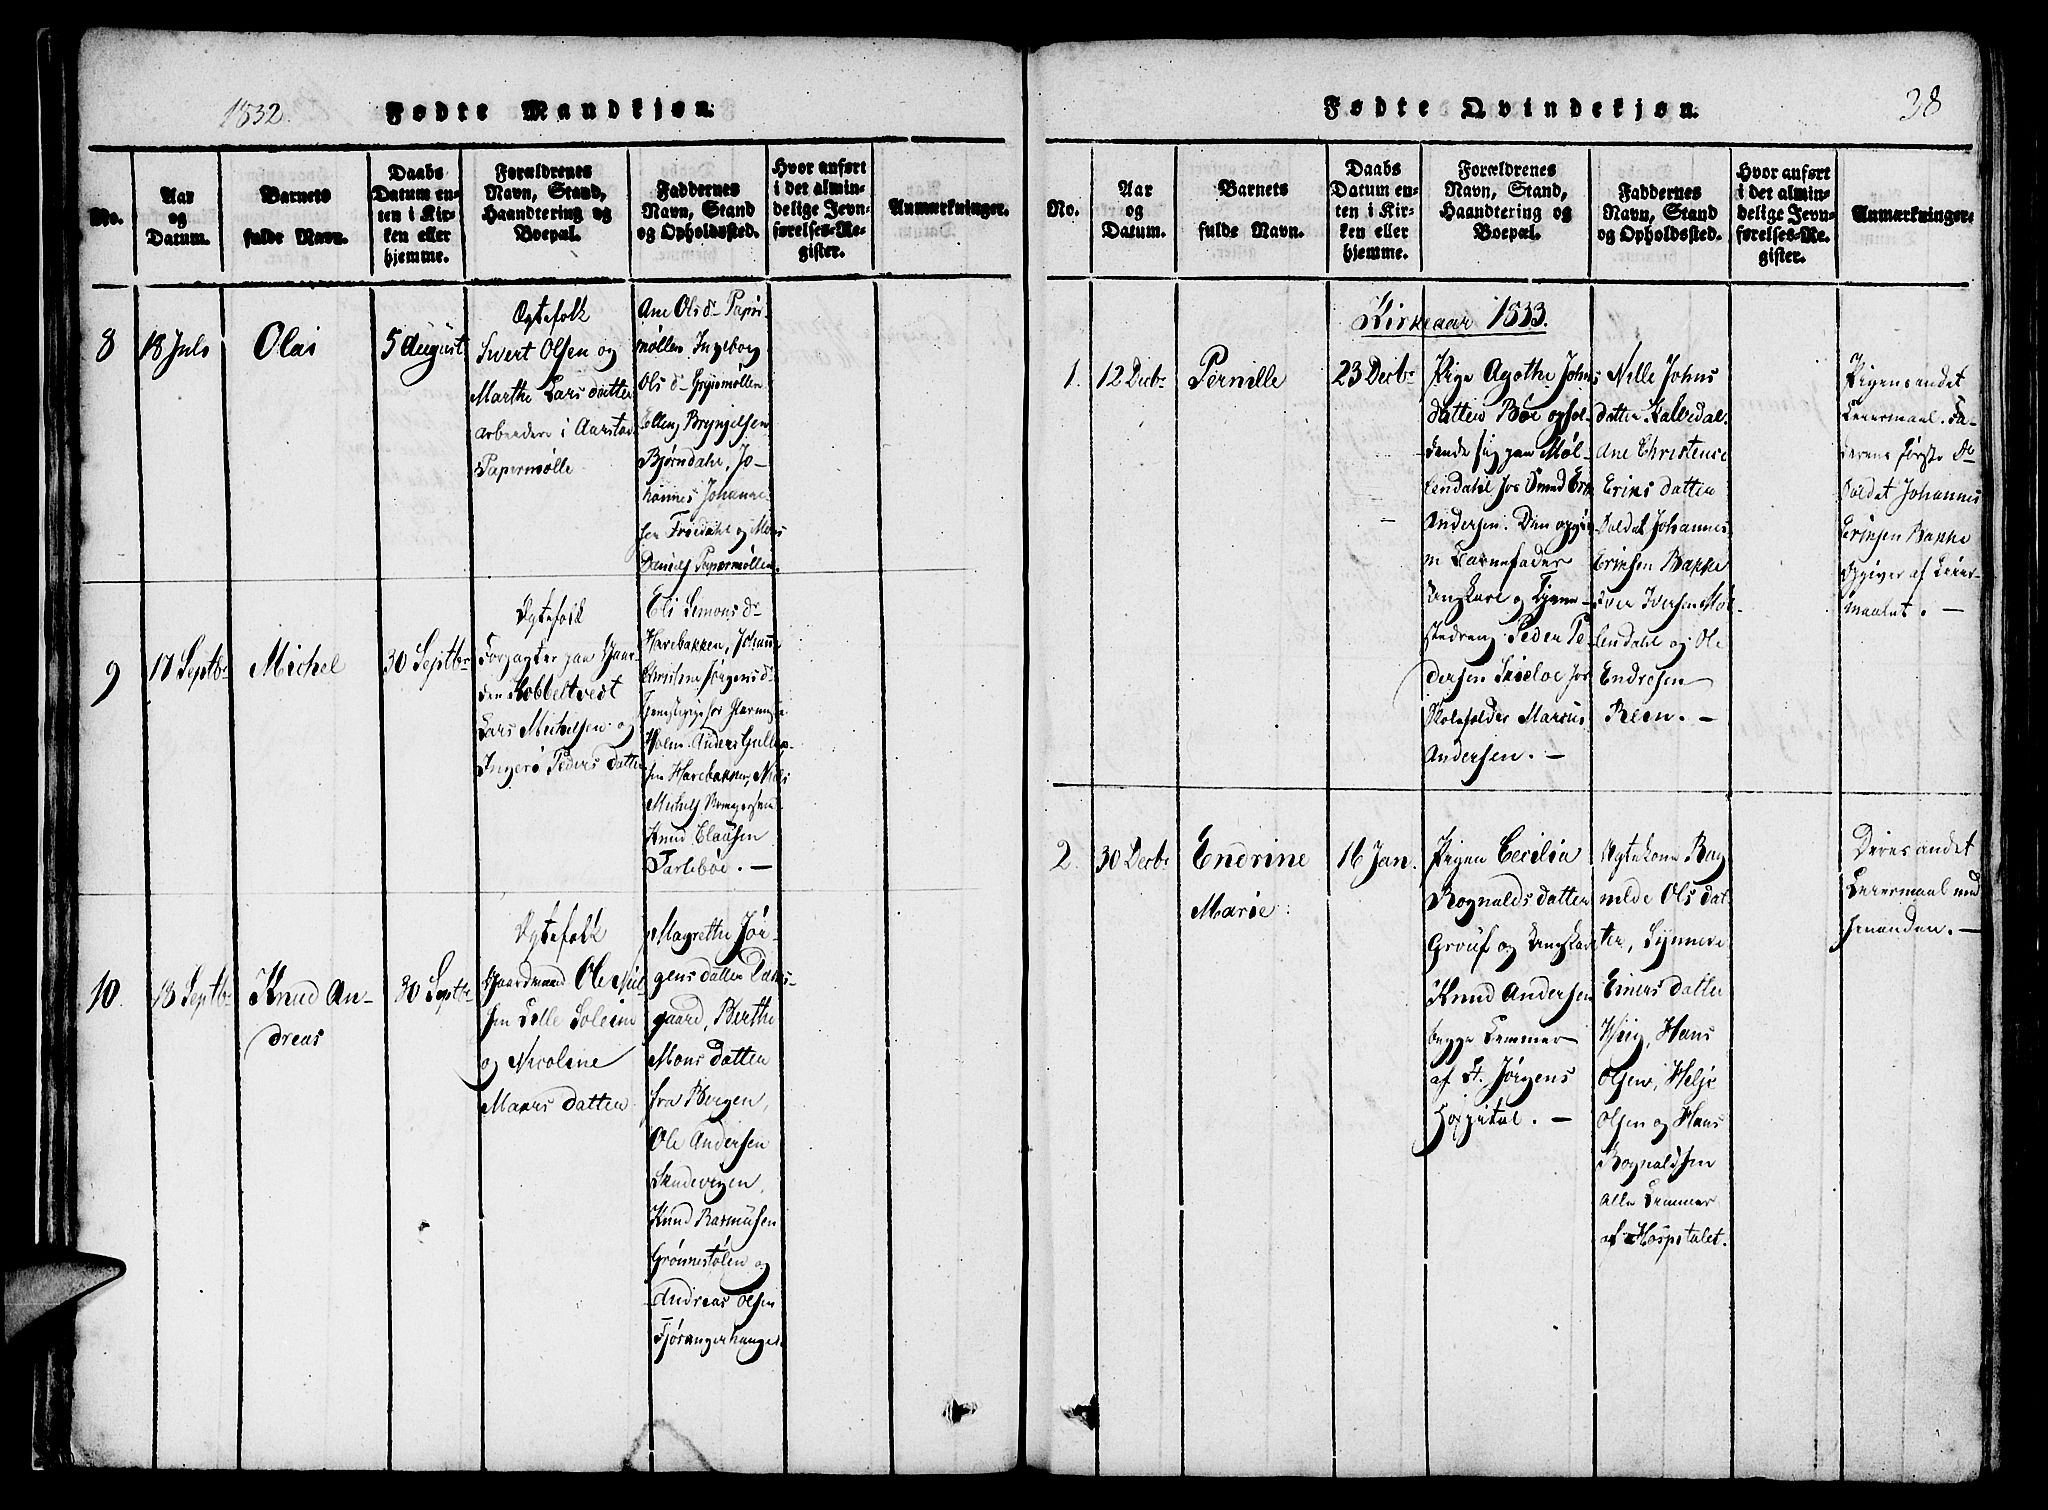 1832.
Fødte Mandkjøn.
No.
Aar
og
Datum.
Barnets
fulde Navn.
Daabs
Datum en-
ten i Kir-
ken eller
hjemme.
Forældrenes
Navn, Stand,
Haandtering og
Boepæl.
Faddernes
Navn, Stand
og Opholdssted.
Hvor anført
i det almin-
delige Jevn-
førelses-Re-
gister.
Anmærkninger.
8
18 Juli
Olai
5 August
Ægtefolk
Sivert Olsen og
Marthe Lars datter
arbeidere i Aarstad
Papermølle
Ane Ols dr Papir
møllen Ingeborg
Ols dr
Ellen Bryngelsen
Bjørndale, Jo-
hannes Johanne-
sen og Mons
Daniels Papermøllen.
9
17 Septbr
Michel
30 Septbr
Ægtefolk
Forpagter paa Gaar-
den Kobbeltvedt
Lars Michelsen og
Ingerø Peders datter
Eli Simons dr
Harebakken, Johanne
Christine Jørgens dr
Holm. Anders Gullak-
sen Harebakken, Niels
Michels
Knud Clausen
Tarlebøe. —
10.
13 Septbr
Knud An-
dreas
30 Septbr
Ægtefolk
Gaardmand Ole Niel-
sen Lille Soleim
og Nicoline
Maars datter
Magrethe Jør-
gens datter Dams-
gaard, Berthe
Mons datter
fra Bergen,
Ole Andersen
Skudevigen,
Knud Rasmusen
Grønnestølen og
Andreas Olsen
Fjøsangerhaugen.
Fødte Qvindekjøn.
38
No.
Aar
og
Datum.
Barnets
fulde Navn.
Daabs
Datum en-
ten i Kir-
ken eller
hjemme.
Forældrenes
Navn, Stand,
Haandtering og
Boepæl.
Faddernes
Navn, Stand
og Opholdssted.
Hvor anført
i det almin-
delige Jevn-
førelses-Re-
gister.
Anmærkninger.
Kirkeaar 1833.
1.
12 Decbr
Pernille
23 Decbr
Pige Agothe Johns
datter Böe ophol-
dende sig paa Møl-
lendahl hos Smed
Andersen. Den opgiv-
n Barnefader
Ungkarl og Tjene-
stedreng Peder Pe-
dersen Skieloe hos
Marcus
Andersen. —
Nille Johns
datter Kalvedal.
Ane Christense
Eriks datter
Soldat Johannes
Eriksen Bakke
Iver Iversen Møl-
lendahl og Ole
Endresen
Reen. —
Pigens andet
Leiermaal. Fa-
derens første
Soldat Johannes
Eriksen Bakke
Opgiver af Leier-
maalet. —
2.
30 Decbr
Endrine
Marie.
16 Jan.
Pigen Cecilia
Rognalds datter
Grouf og Ungkarl
Knud Andersen
begge Lemmer
af St. Jørgens
Hospital. —
Ægtekone Rag
nilde Ols dat
ter, Synneve
Einers datter
Hans
Olsen, Helje
Olsen og Hans
Rognaldsen
alle Lemmer
af Hospitalet.
Deres andet
Leiermaal med
hinanden. —